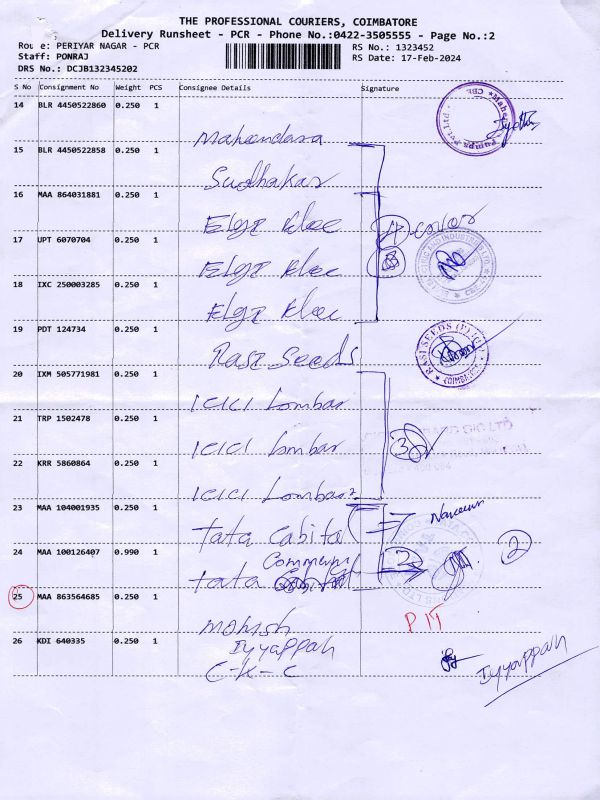 THE PROFESSIONAL COURIERS, COIMBATORE
Delivery Runsheet - PCR - Phone No.:0422-3505555 - Page No.:2
Route: PERIYAR NAGAR - PCR RS No.: 1323452
Staff: PONRAJ RS Date: 17-Feb-2024
DRS No.: DCJB132345202
S No Consignment No Weight PCS Consignee Details Signature
14 BLR 4450522860 0.250 1
Maheendara
15 BLR 4450522858 0.250 1
Sudhakar
16 MAA 864031881 0.250 1
Elgi Elec
4 cover
17 UPT 6070704 0.250 1
Elgi Elec
18 IXC 250003285 0.250 1
Elgi Elec
19 PDT 124734 0.250 1
Rasi Seeds
20 IXM 505771981 0.250 1
ICICI Lombar
21 TRP 1502478 0.250 1
ICICI Lombar
3
22 KRR 5860864 0.250 1
ICICI Lombar
23 MAA 104001935 0.250 1
Tata Cabital
24 MAA 100126407 0.990 1
Tata
2
2
25 MAA 863564685 0.250 1
Mohish
26 KDI 640335 0.250 1
Iyyappan
C-K-C
Iyyappan